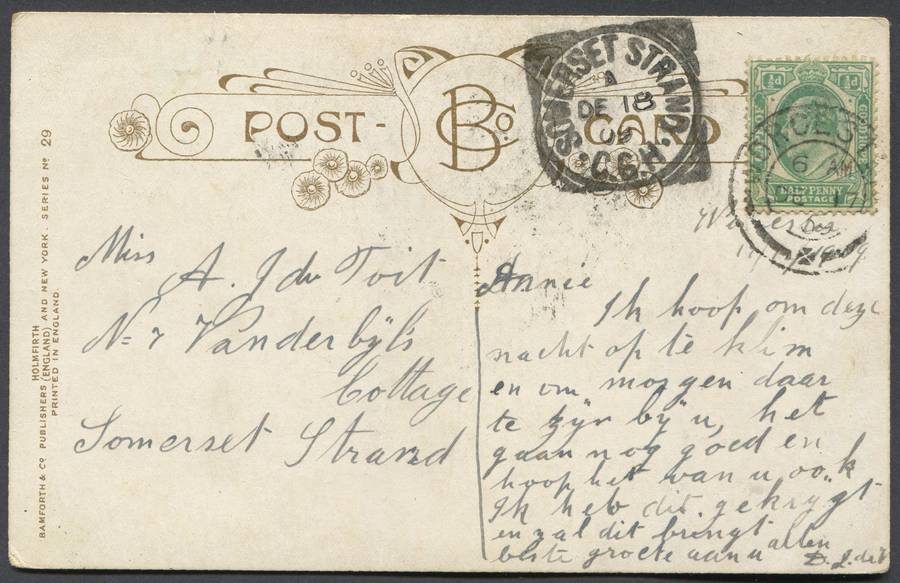 POST- B&Co. CARD
SOMERSET STRAND. C.G.H.
A
DE 18
09
½d ½d
HALFPENNY
POSTAGE
6 AM
Miss
A. J du Toit
No 7 Vanderbÿl's
Cottage
Somerset Strand
1909
Annie
Ik hoop om deze
nacht op te klim
en om morgen daar
te zÿn bÿ u, het
gaan nog goed en
hoop het van u ook
Ik heb dit gekrygt
en zal dit brengt
beste groete aan u allen
D. J. du T
BAMFORTH & CO PUBLISHERS HOLMFIRTH (ENGLAND) AND NEW YORK. SERIES No 29
PRINTED IN ENGLAND.